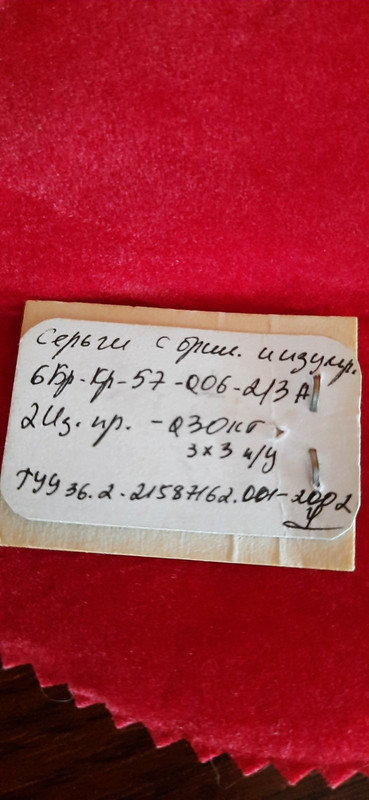 Серьги с брил. изумр.
6Бр-Кр-57-0,06-2/3 А
2Из. пр. - 0,30 кт
3х3 и/у
ТУУ 36.2-21587162.001-2002